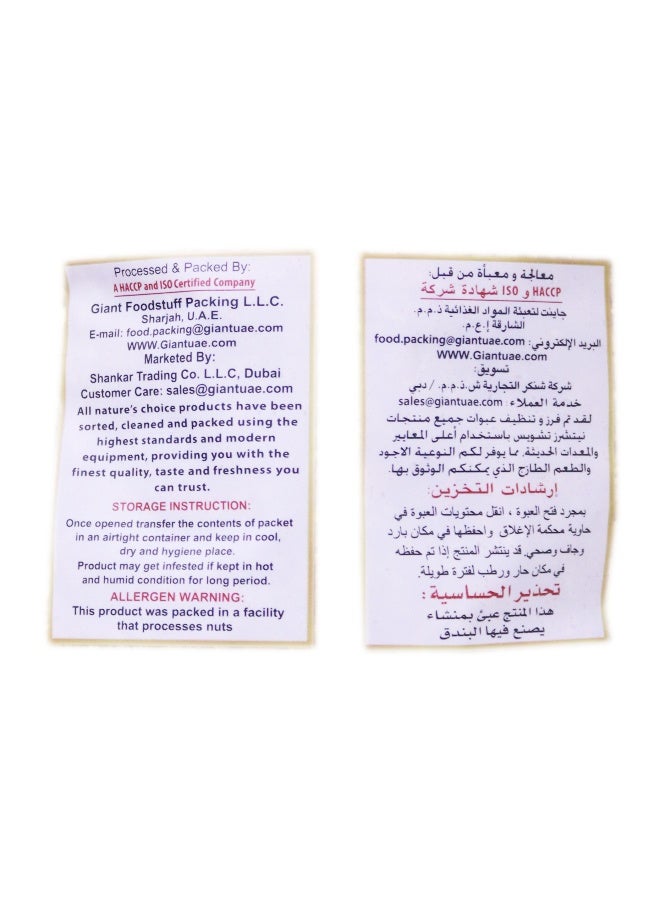 Processed & Packed By:
A HACCP and ISO Certified Company
Giant Foodstuff Packing L.L.C.
Sharjah, U.A.E.
E-mail: food.packing@giantuae.com
WWW.Giantuae.com
Marketed By:
Shankar Trading Co. L.L.C, Dubai
Customer Care: sales@giantuae.com
All nature's choice products have been
sorted, cleaned and packed using the
highest standards and modern
equipment, providing you with the
finest quality, taste and freshness you
can trust.
STORAGE INSTRUCTION:
Once opened transfer the contents of packet
in an airtight container and keep in cool,
dry and hygiene place.
Product may get infested if kept in hot
and humid condition for long period.
ALLERGEN WARNING:
This product was packed in a facility
that processes nuts
معالجة و معبأة من قبل:
HACCP و ISO شهادة شركة
جاينت لتعبئة المواد الغذائية ذ.م.م.
الشارقة إ.ع.م.
البريد الإلكتروني: food.packing@giantuae.com
WWW.Giantuae.com
تسويق:
شركة شنكر التجارية ش.ذ.م.م. / دبي
خدمة العملاء: sales@giantuae.com
لقد تم فرز و تنظيف عبوات جميع منتجات
نيتشرز تشويس باستخدام أعلى المعايير
والمعدات الحديثة. مما يوفر لكم النوعية الاجود
والطعم الطازج الذي يمكنكم الوثوق بها.
إرشادات التخزين:
بمجرد فتح العبوة ، انقل محتويات العبوة في
حاوية محكمة الإغلاق واحفظها في مكان بارد
وجاف وصحي. قد ينتشر المنتج إذا تم حفظه
في مكان حار ورطب لفترة طويلة.
تحذير الحساسية:
هذا المنتج عبئ بمنشاء
يصنع فيها البندق